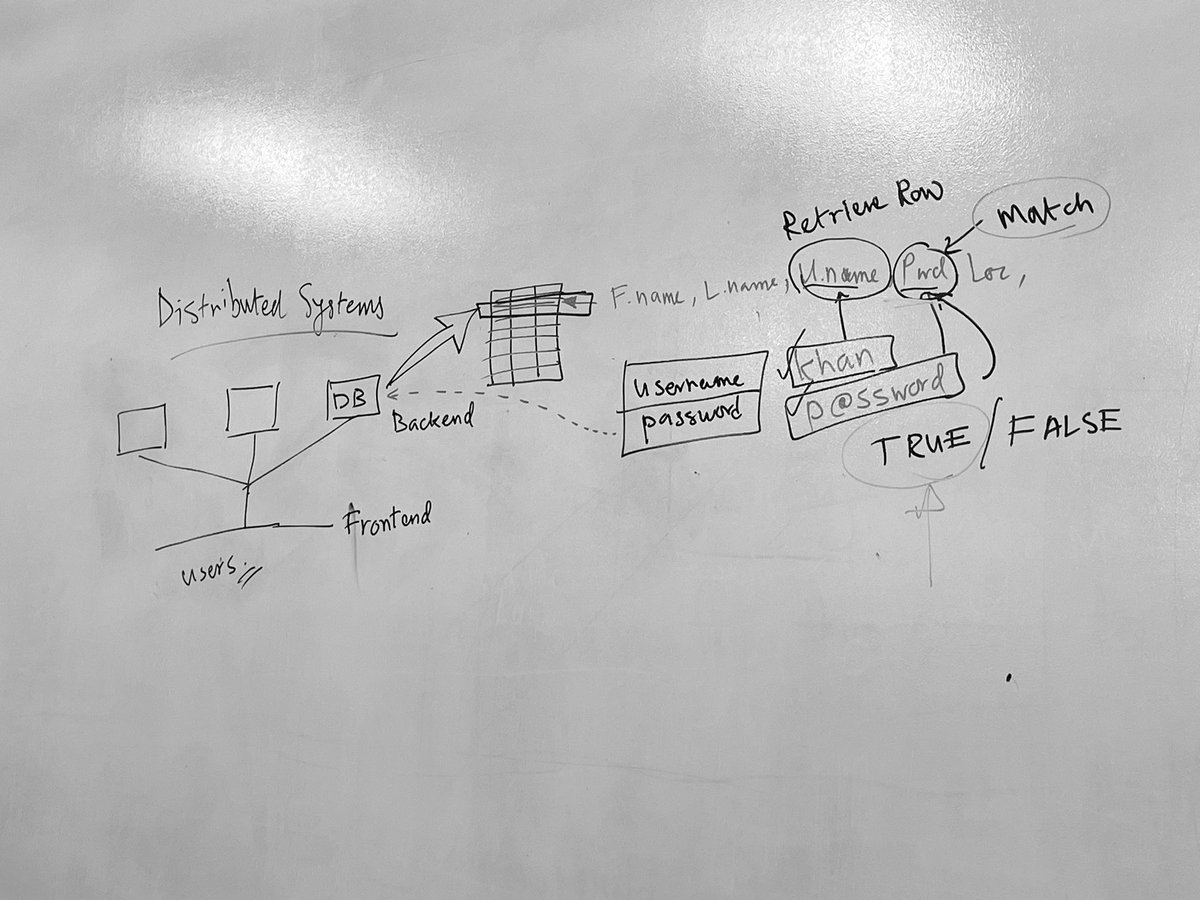 Retrieve Row
Match
F.name, L.name, U.name Pwd Loc,
Distributed Systems
khan
username
p@ssword
password
DB
Backend
TRUE / FALSE
Frontend
users.